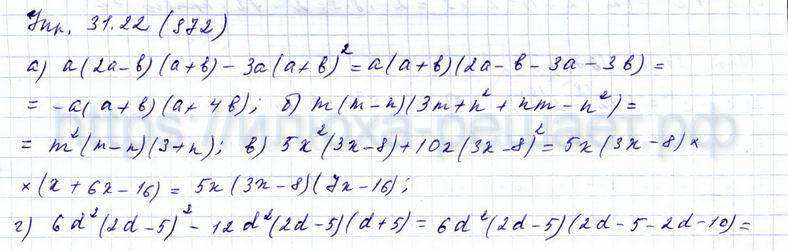 Упр. 31.22 (372)
а) a(2a-b)(a+b) - 3a(a+b)² = a(a+b)(2a-b-3a-3b) =
= -a(a+b)(a+4b); б) m(m-n)(3m+n²+nm-n²) =
= m²(m-n)(3+n); в) 5x²(3x-8)+10x(3x-8)² = 5x(3x-8)×
×(x+6x-16) = 5x(3x-8)(7x-16);
г) 6d²(2d-5)² - 12d²(2d-5)(d+5) = 6d²(2d-5)(2d-5-2d-10) =